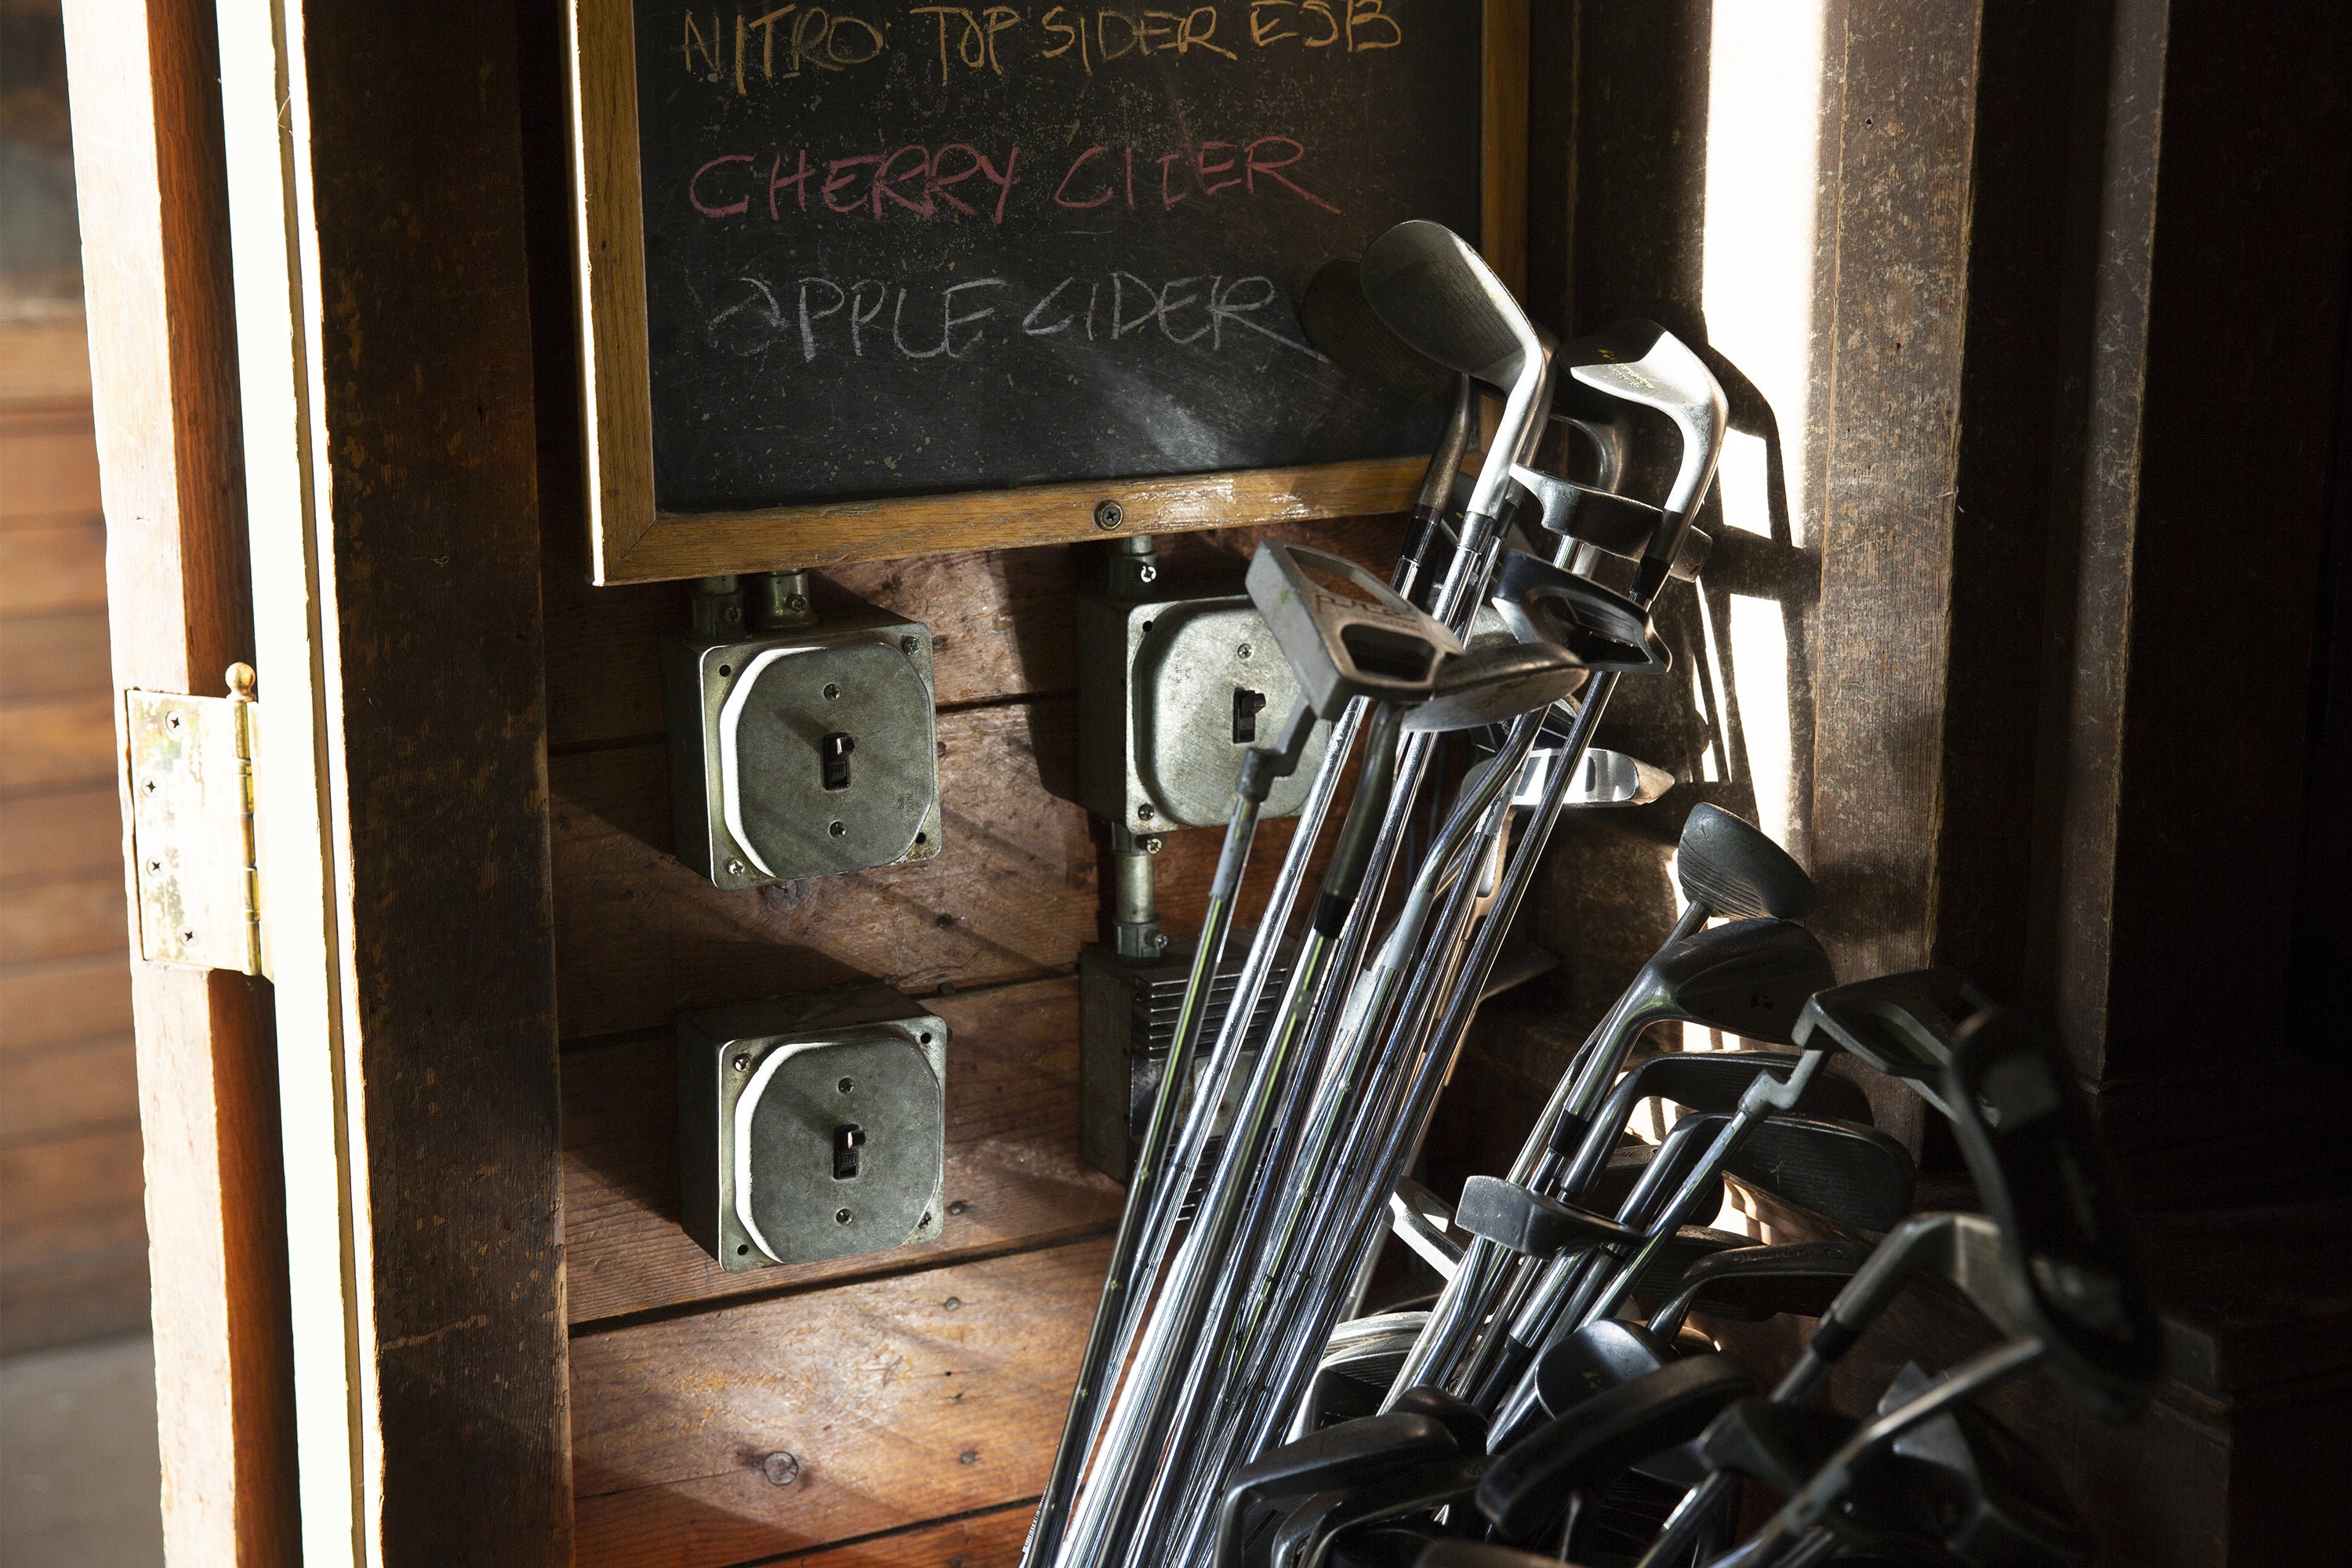 NITRO TOP SIDER ESB
CHERRY CIDER
aPPLE CIDER